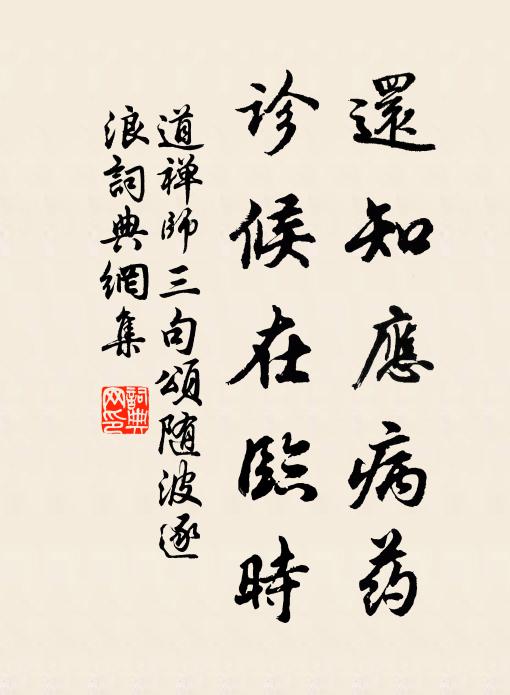 還知應病药
診候在臨時
道禅師三句頌随波逐
浪詞典網集
詞典
网印